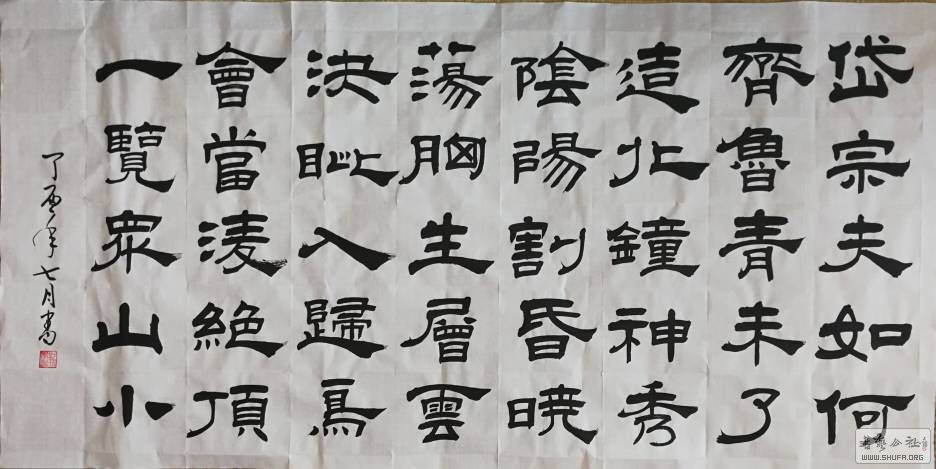 岱宗夫如何
齊魯青未了
造化鐘神秀
陰陽割昏暁
蕩胸生層雲
決眦入歸鳥
會當淩絕頂
一覽眾山小
丁酉年七月書
WWW.SHUFA.ORG